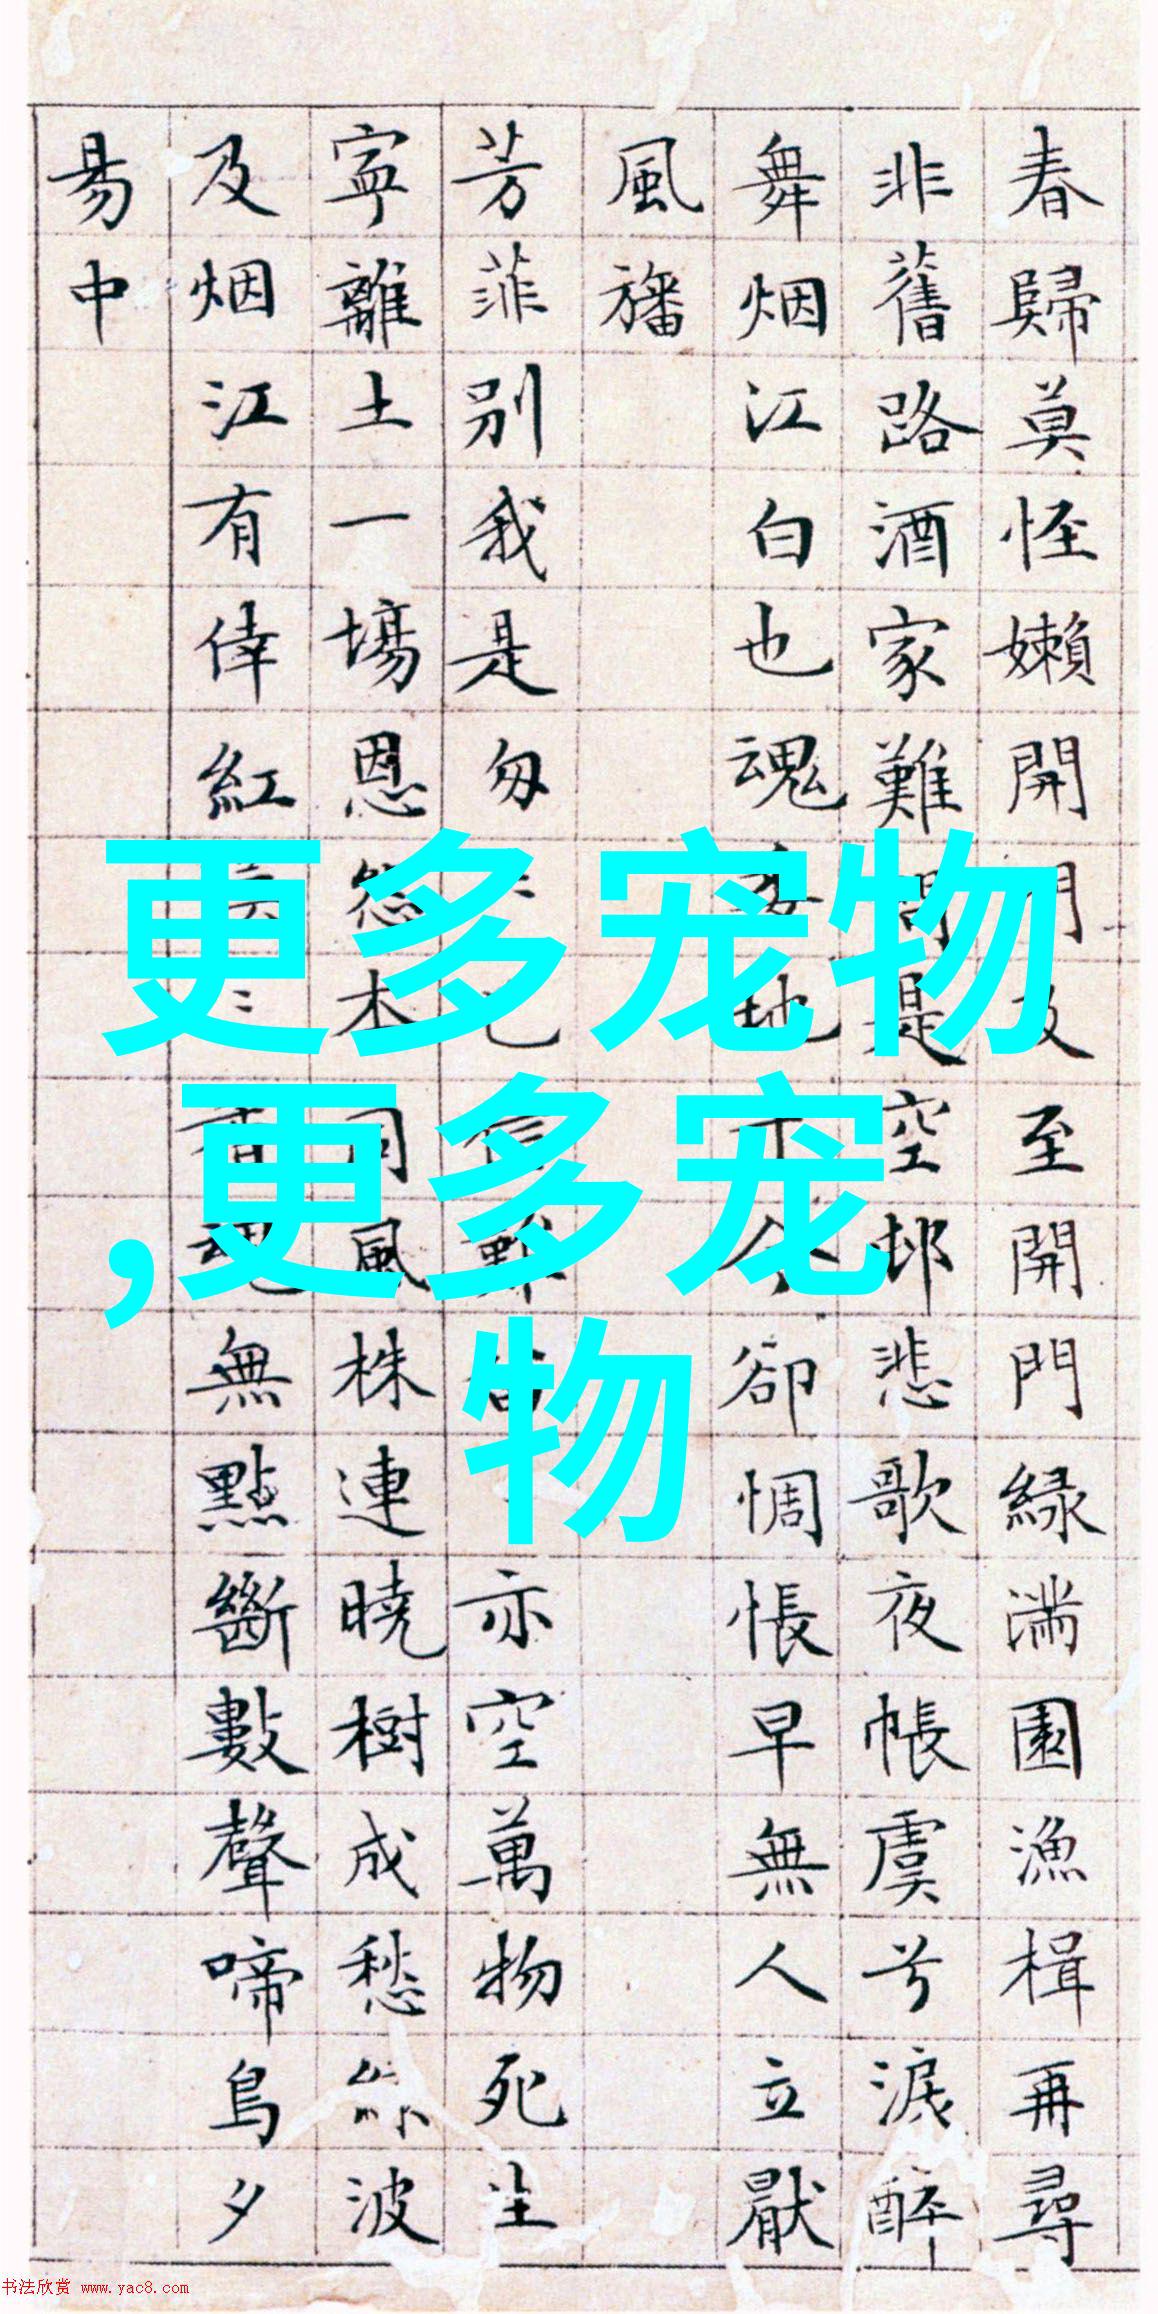 春歸莫怪嬾開門及至開門緑滿園漁楫再尋
非舊路酒家難問是空邨悲歌夜帳虞兮淚醉
舞烟江白也魂委地于今卻惆悵早無人立厭
風旛
芳菲別我是匆已信難亦空萬物死生
寧離土一場恩怨本同風株連曉樹成愁緑波
及烟江有倖紅香魂無點斷數聲啼鳥夕
昜中
更多宠物
,更多宠
物
书法欣赏 www.yac8.com